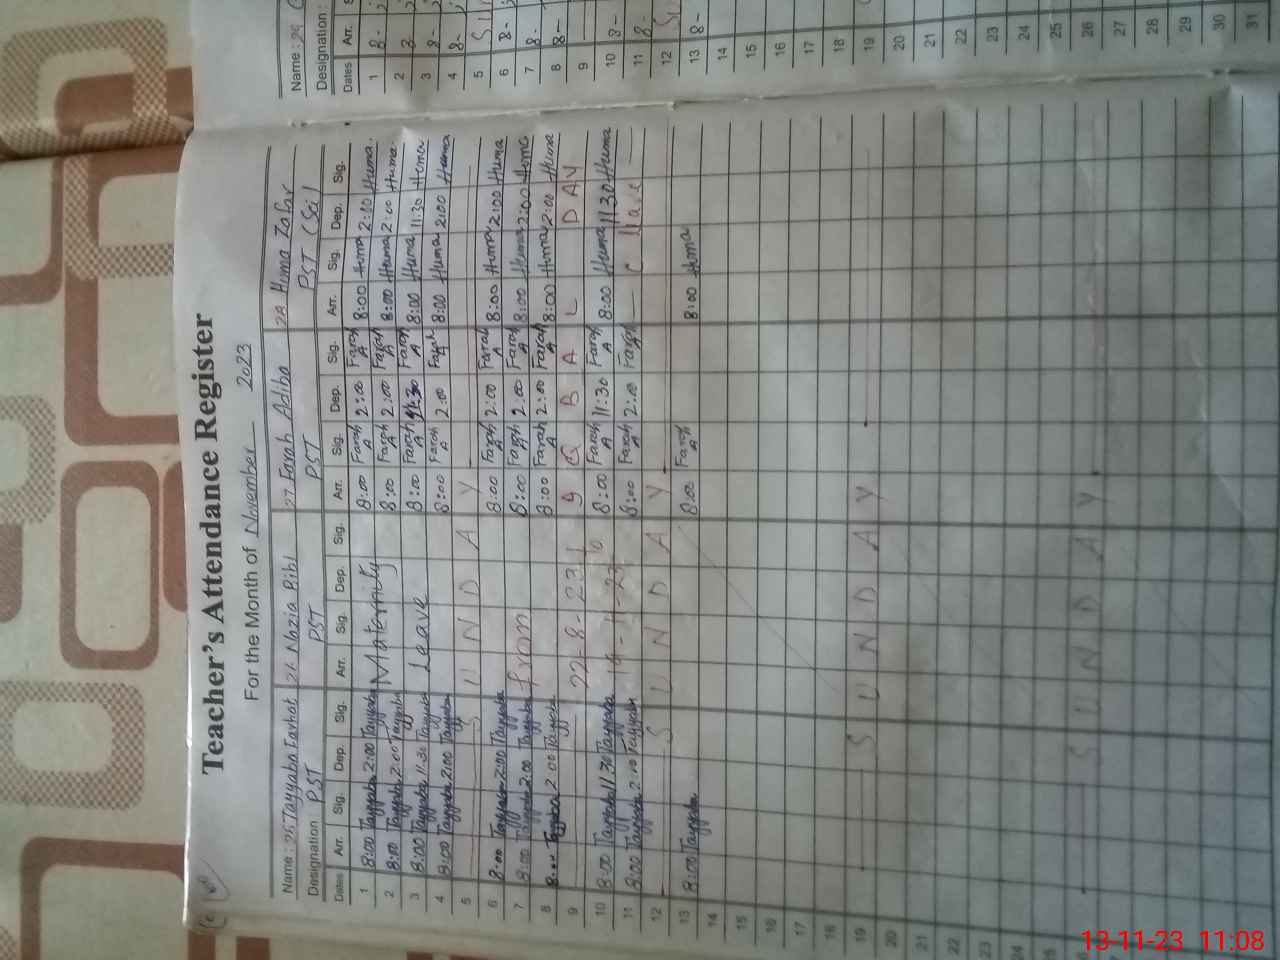 Teacher's Attendance Register
For the Month of November 2023
Name: 25 Tayyaba Farhat 26 Nazia Bibi 27 Farah Adiba 28 Huma Zafar
Designation PST PST PST PST (Sci)
Dates Arr. Sig. Dep. Sig. Arr. Sig. Dep. Sig. Arr. Sig. Dep. Sig. Arr. Sig. Dep. Sig.
1 8:00 Tayyaba 2:00 Tayyaba Maternity 8:00 Farah A 2:00 Farah A 8:00 Huma 2:00 Huma.
2 8:00 Tayyaba 2:00 Tayyaba 8:00 Farah A 2:00 Farah A 8:00 Huma 2:00 Huma.
3 8:00 Tayyaba 11:30 Tayyaba Leave 8:00 Farah A 11:30 Farah A 8:00 Huma 11:30 Huma
4 8:00 Tayyaba 2:00 Tayyaba 8:00 Farah A 2:00 Farah A 8:00 Huma 2:00 Huma
5 S U N D A Y
6 8:00 Tayyaba 2:00 Tayyaba 8:00 Farah A 2:00 Farah A 8:00 Huma 2:00 Huma
7 8:00 Tayyaba 2:00 Tayyaba from 8:00 Farah A 2:00 Farah A 8:00 Huma 2:00 Huma
8 8:00 Tayyaba 2:00 Tayyaba 8:00 Farah A 2:00 Farah A 8:00 Huma 2:00 Huma
9 22-8-23 to I Q B A L D A Y
10 8:00 Tayyaba 11:30 Tayyaba 8:00 Farah A 11:30 Farah A 8:00 Huma 11:30 Huma
11 8:00 Tayyaba 2:00 Tayyaba 8:00 Farah A 2:00 Farah A C
12 S U N D A Y
13 8:00 Tayyaba 8:00 Farah A 8:00 Huma
14
15
16
17
18
19 S U N D A Y
20
21
22
23
24
25
26 S U N D A Y
Name: 29
Designation:
Dates Arr.
1 8-
2 8-
3 8-
4 8-
5
6 8-
7 8-
8 8-
9
10 8-
11 8-
12
13 8-
14
15
16
17
18
19
20
21
22
23
24
25
26
27
28
29
30
31
13-11-23 11:08